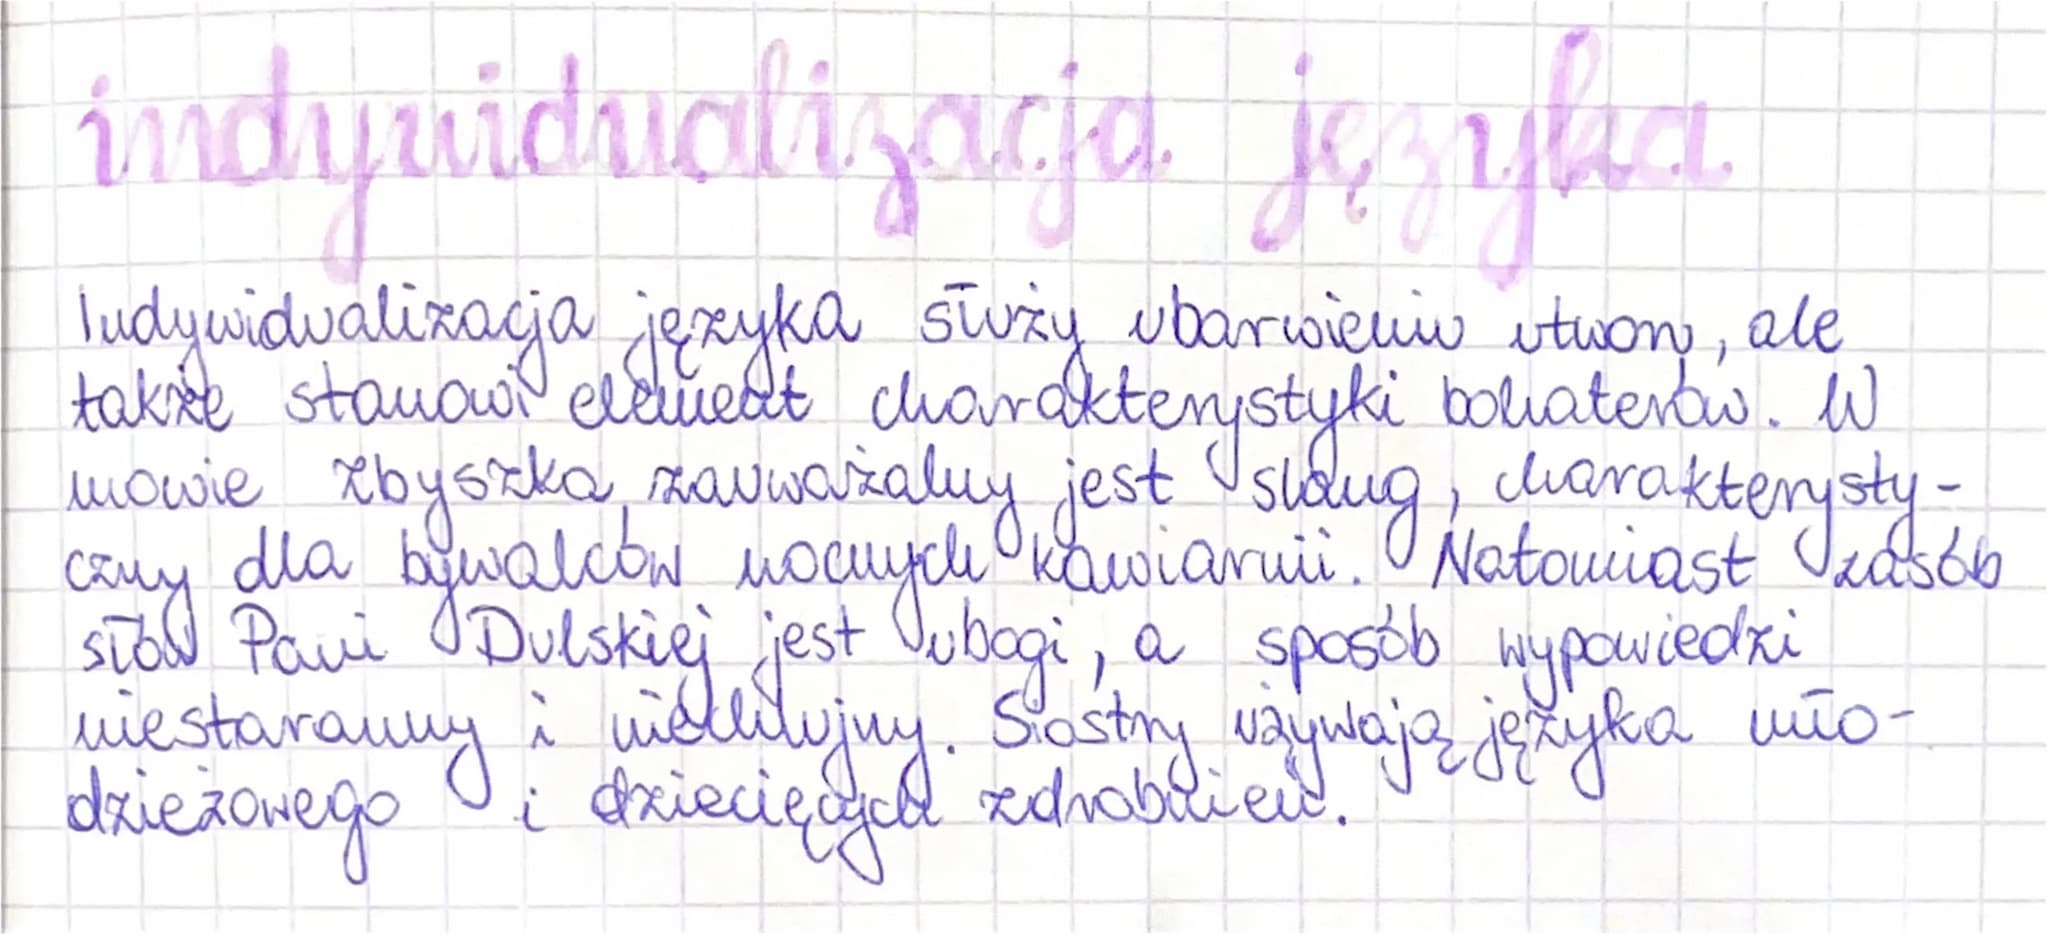 indywidualizacja języka
Indywidualizacja języka służy ubarwieniu utworu, ale
także stanowi element charakterystyki bohaterów. W
mowie Zbyszka zauważalny jest slang, charakterysty-
czny dla bywalców nocnych kawiarnii. Natomiast zasób
słów Pani Dulskiej jest ubogi, a sposób wypowiedzi
niestaranny i niechlujny. Siostry używają języka mło-
dzieżowego i dziecięcych zdrobnień.